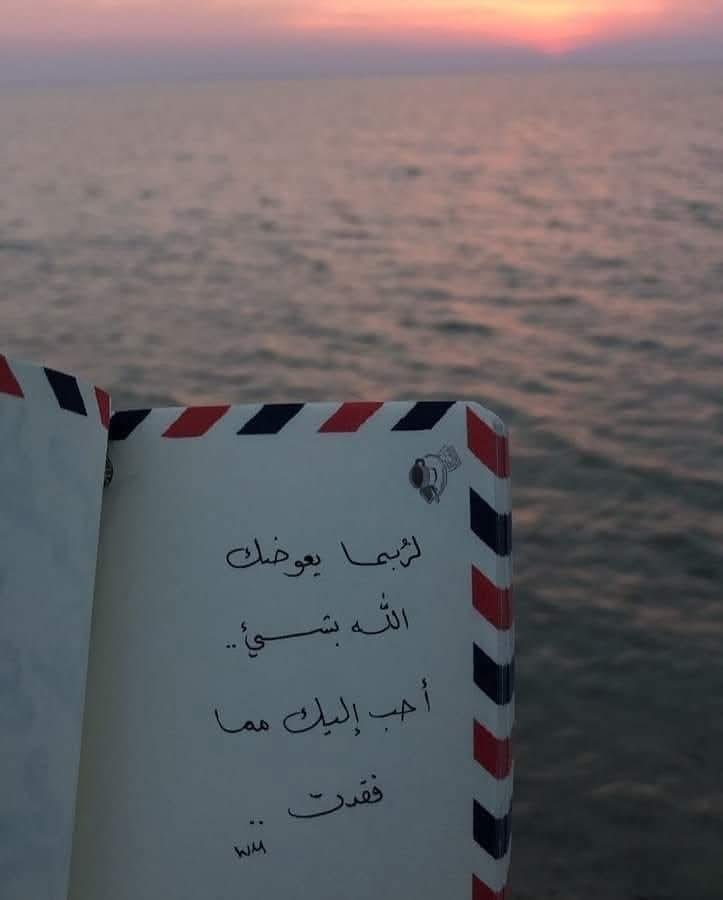 لرُبما يعوضك
الله بشئ..
أحب إليك مما
فقدت ..